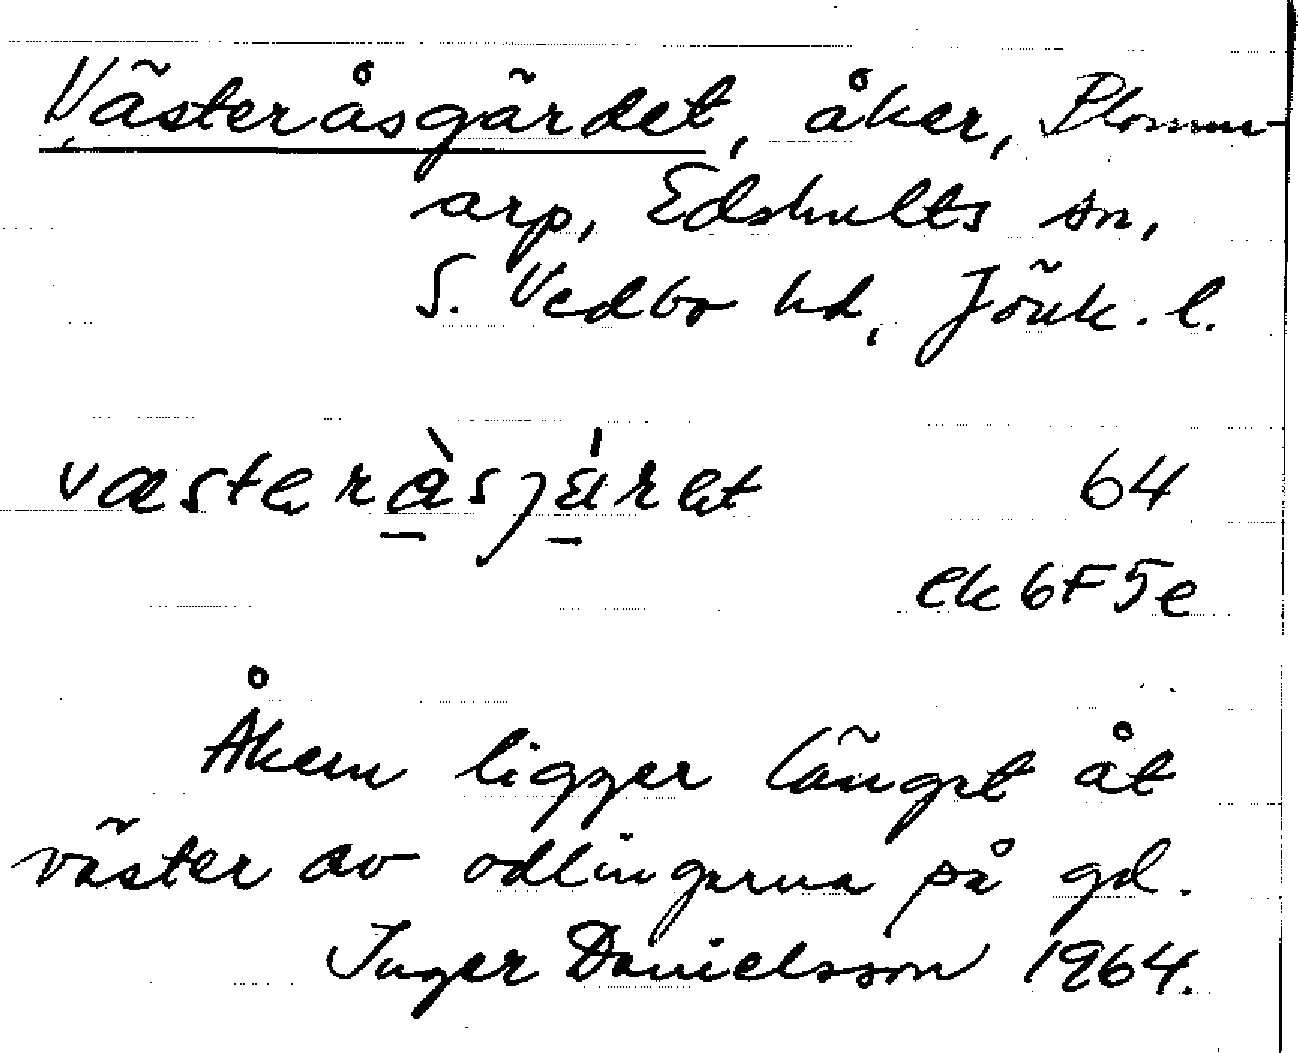 Västeråsgärdet, åker, Plomm-
arp, Edshults sn,
S. Vedbo hd, Jönk. l.
væsterà̱sjä̱́ret 64
ek 6F5e
Åkern ligger längst åt
väster av odlingarna på gd.
Inger Danielsson 1964.